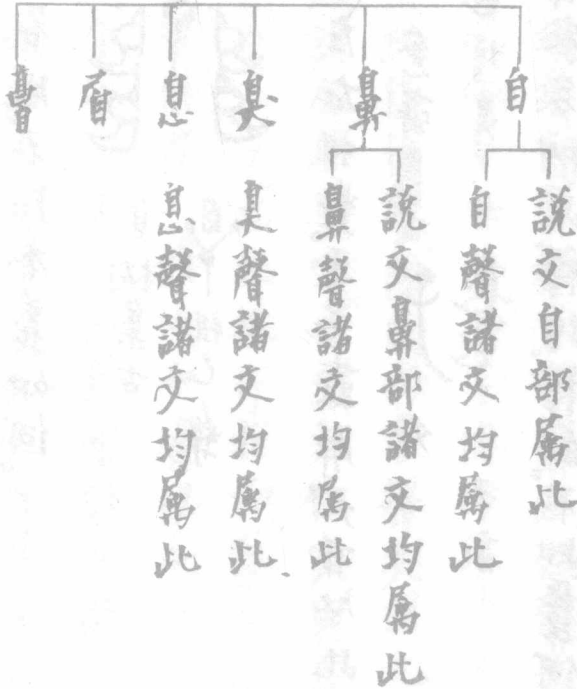 自
説文自部屬此
自聲諸文均屬此
鼻
説文鼻部諸文均屬此
鼻聲諸文均屬此
臭
臭聲諸文均屬此
息
息聲諸文均屬此
眉